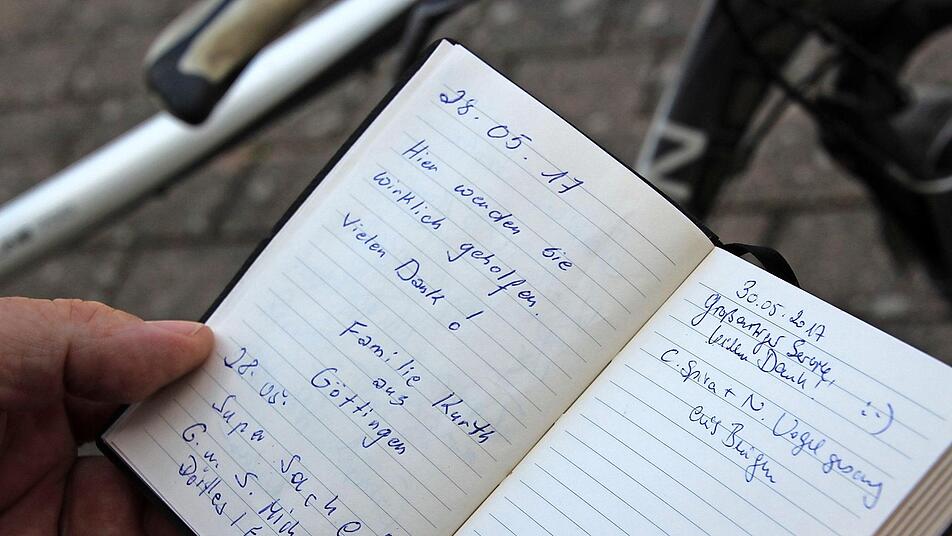 28. 05. 17
Hier wenden Sie
wirklich geholfen.
Vielen Dank!
Familie Kurth
aus
Göttingen
28. 05.
Super Sache
G. u. S. Mich
30.05.2017
Großartiger Service,
Dank!
:-)
C. Spira + N. Vogelgesang
aus